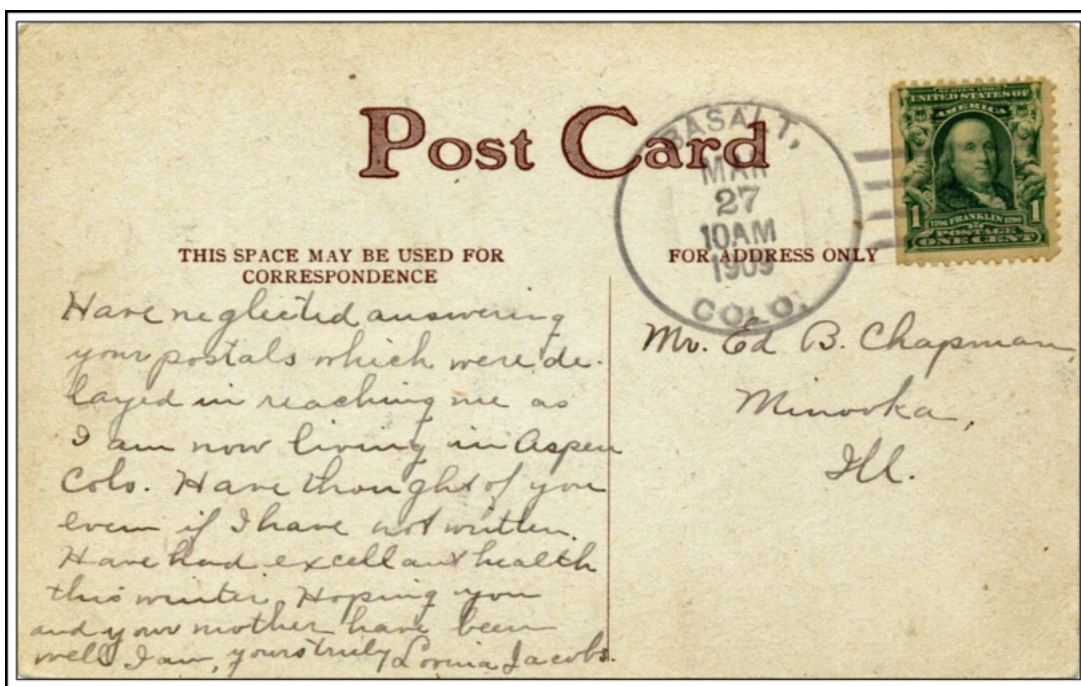 Post Card
BASALT,
MAR
27
10AM
1909
COLO.
SERIES 1902
UNITED STATES OF
AMERICA
1 1706 FRANKLIN 1790 1
POSTAGE
ONE CENT
THIS SPACE MAY BE USED FOR
CORRESPONDENCE
FOR ADDRESS ONLY
Have neglected answering
your postals which were de-
layed in reaching me as
I am now living in Aspen
Colo. Have thought of you
even if I have not written.
Have had excellant health
this winter. Hoping you
and your mother have been
well I am, yours truly Jacobs.
Mr. Ed B. Chapman,
Minooka,
Ill.